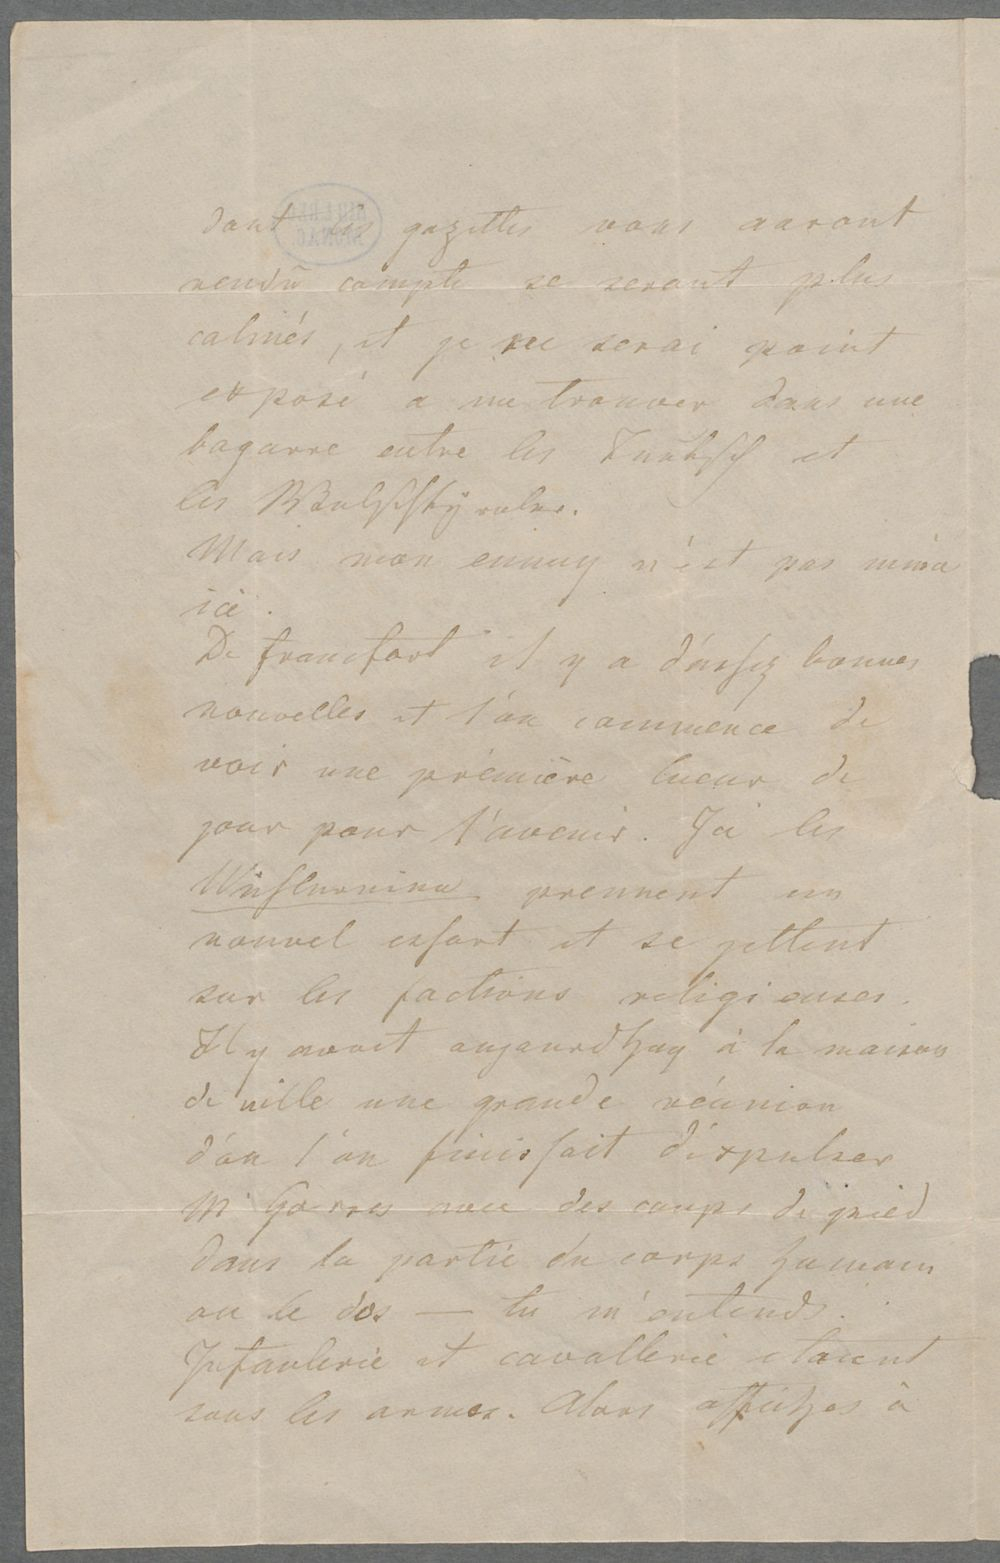 dont les gazettes vous auront
rendû compte se seront plus
calmés, et je ne serai point
exposé a me trouver dans une
bagarre entre les et
les
Mais mon ennuy n'est pas même
ici.
De francfort il y a d'assez bonnes
nouvelles et l'on commence de
voir une prémière lueur de
jour pour l'avenir. Ici les
prennent un
nouvel essort et se jettent
sur les factions religieuses.
Il y avoit aujourdhuy à la maison
de ville une grande réunion
d'ou l'on finissait d'expulser
Mr Görres avec des coups de pied
dans la partie du corps humain
ou le dos — tu m'entends.
Infanterie et cavallerie etaient
sous les armes. Alors affiches à